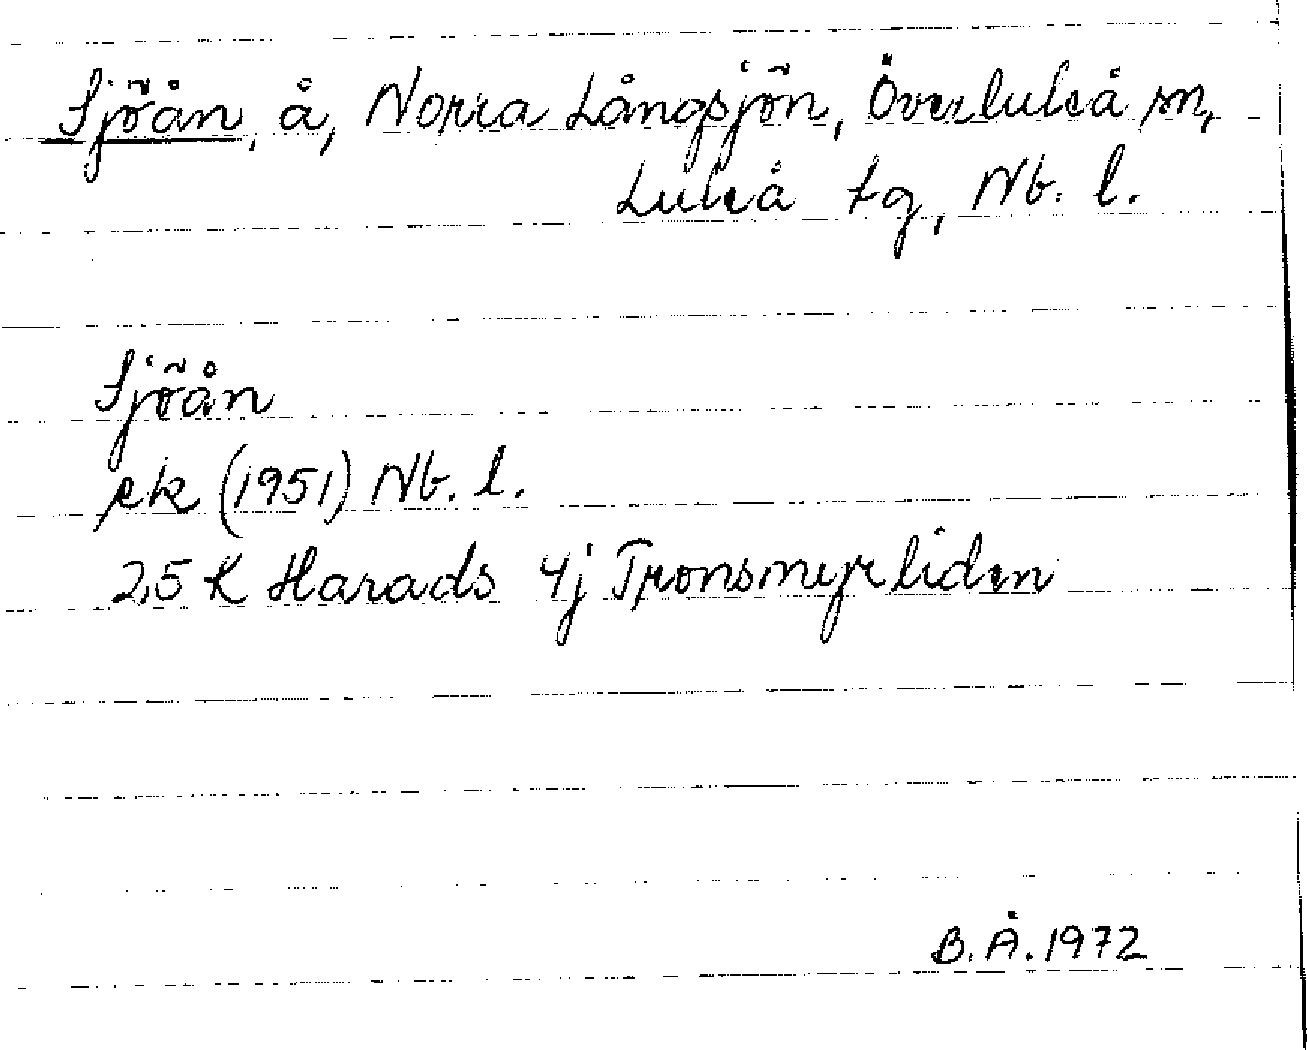 Sjöån, å, Norra Långsjön, Överluleå sn,
Luleå tg, Nb. l.
Sjöån
ek (1951) Nb. l.
2,5 K Harads 4j Tronsmyrliden
B.Å. 1972